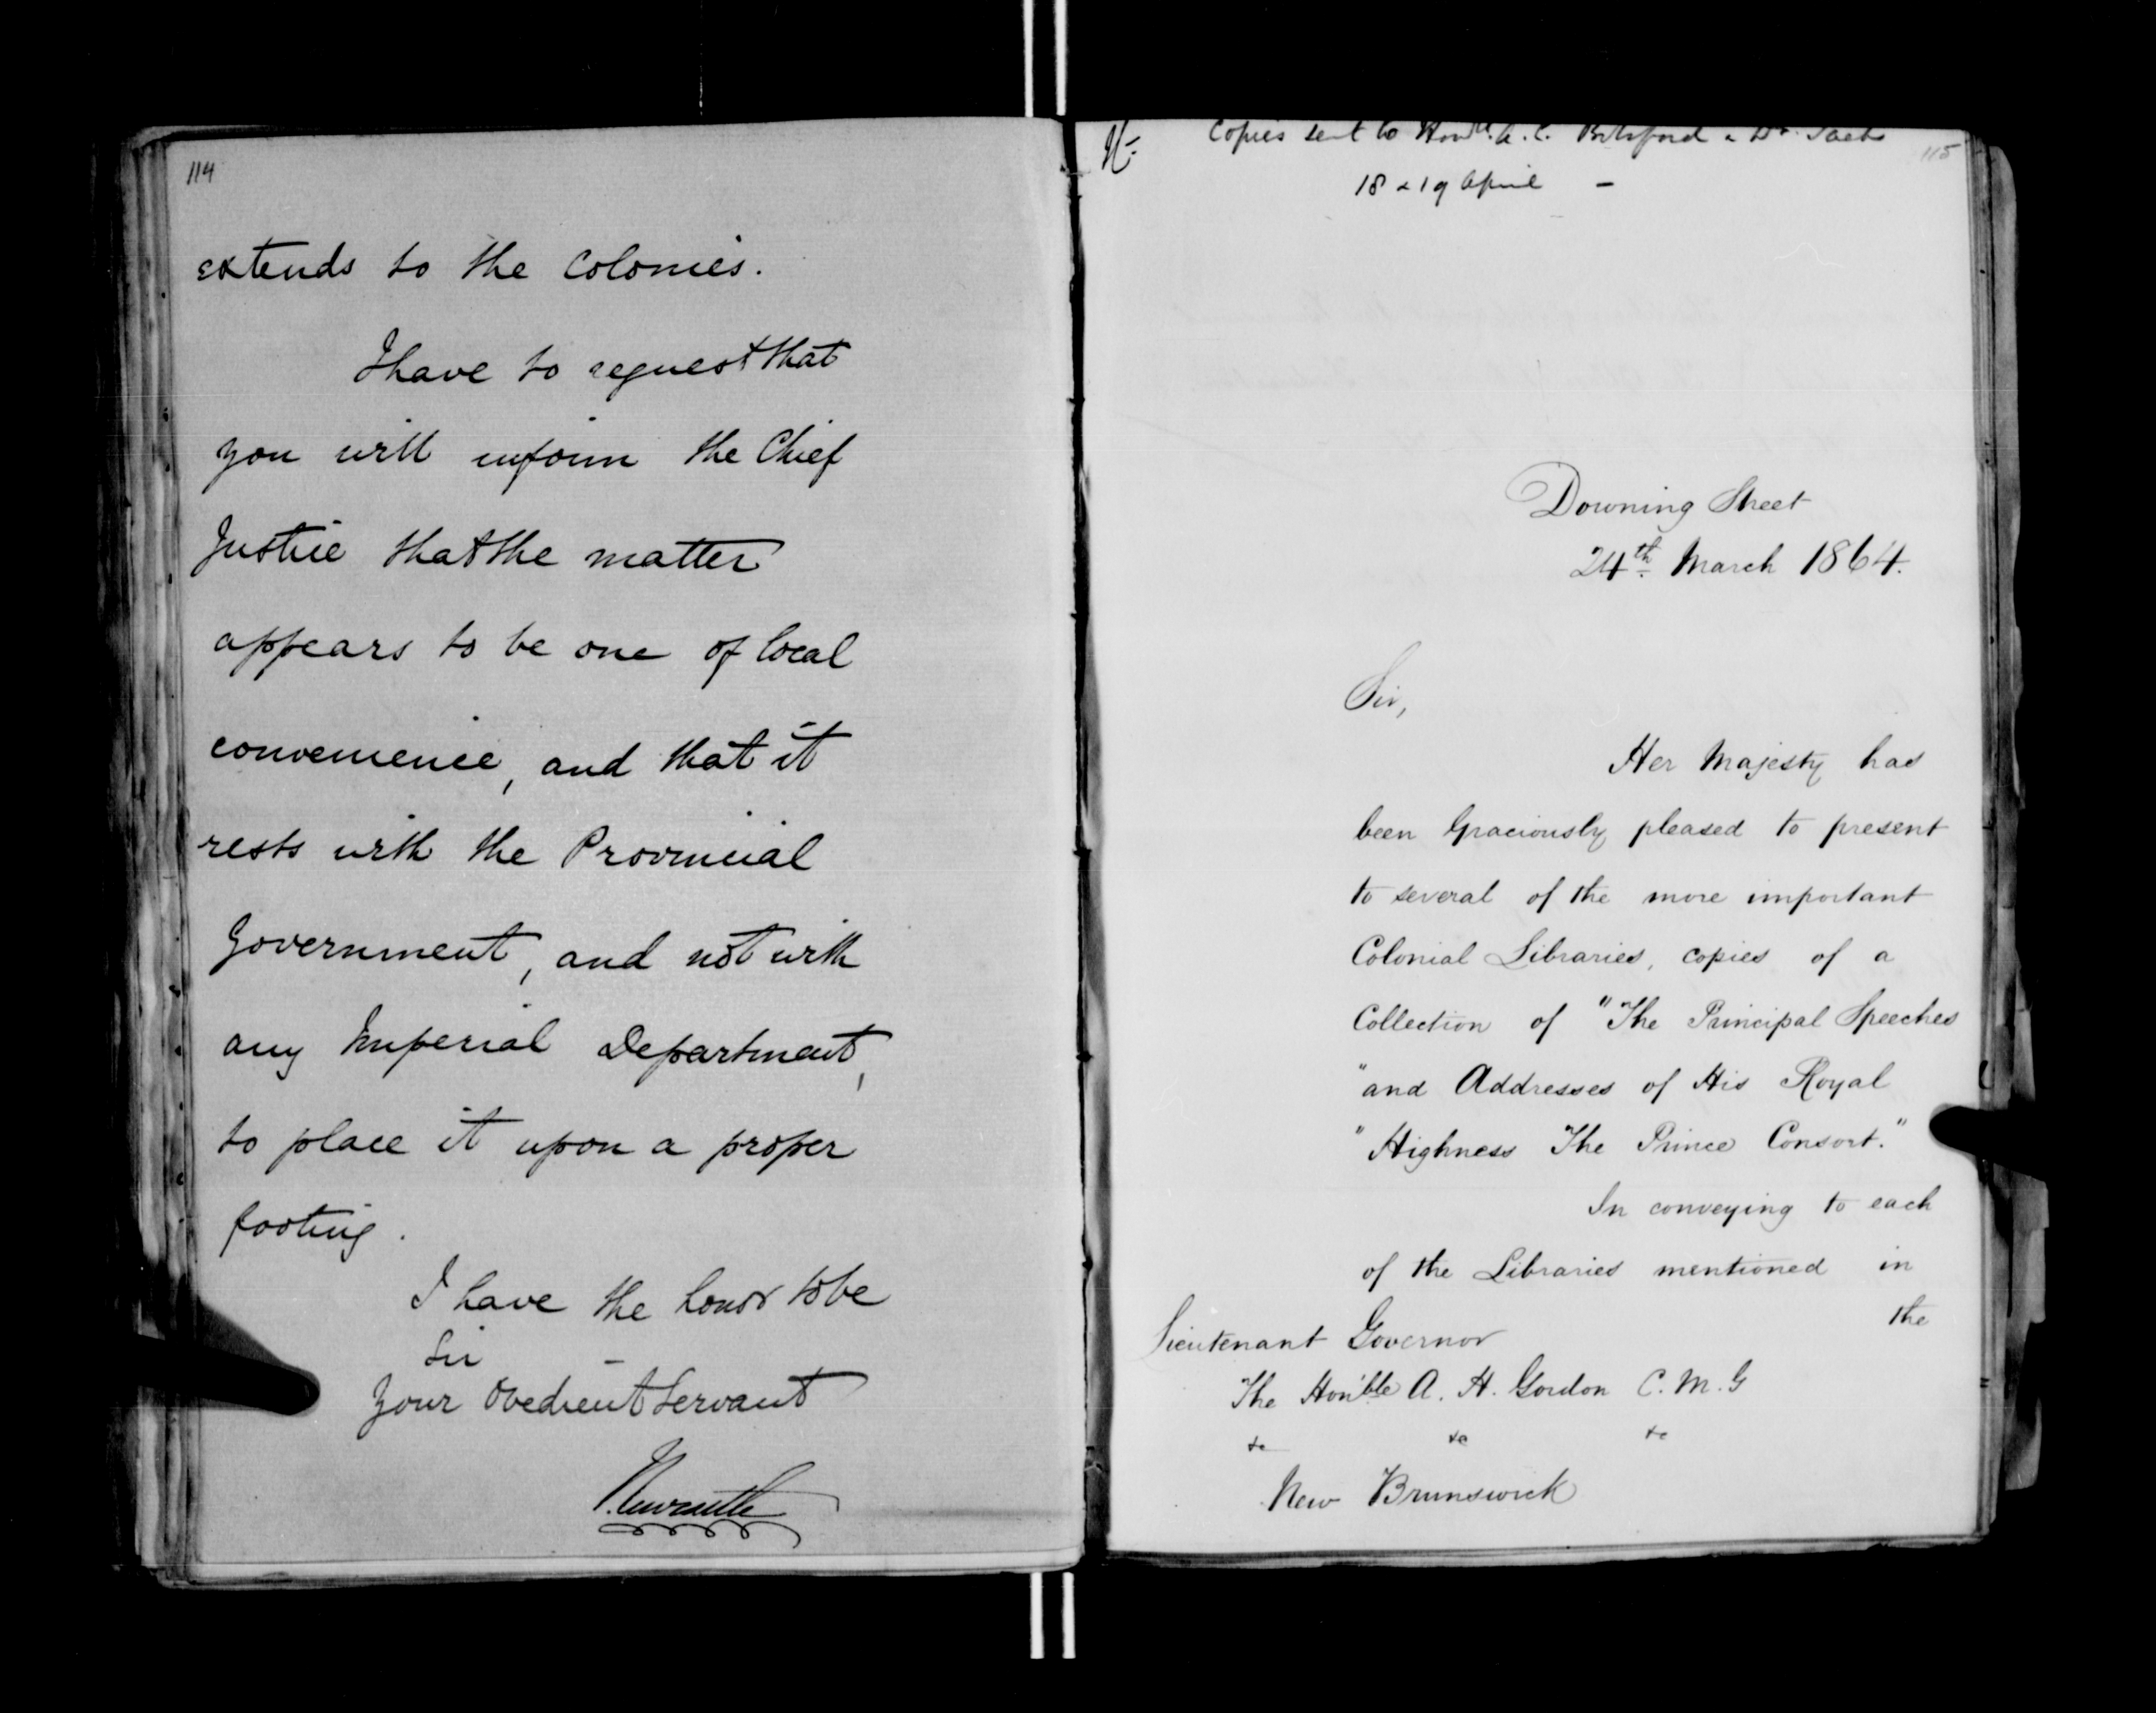 114
extends to the Colonies.
I have to request that
you will inform the Chief
Justice that the matter
appears to be one of local
convenience, and that it
rests with the Provincial
Government, and not with
any Imperial Department,
to place it upon a proper
footing.
I have the honor to be
Sir
Your Obedient Servant
Newcastle
115
Copies sent to Honble. A. E. Botsford & Dr.
18 & 19 April –
Downing Street
24th. March 1864.
Sir,
Her Majesty has
been Graciously pleased to present
to several of the more important
Colonial Libraries, copies of a
Collection of "The Principal Speeches
"and Addresses of His Royal
"Highness The Prince Consort."
In conveying to each
of the Libraries mentioned in
the
Lieutenant Governor
The Hon'ble A. H. Gordon C. M. G
&c &c &c
New Brunswick